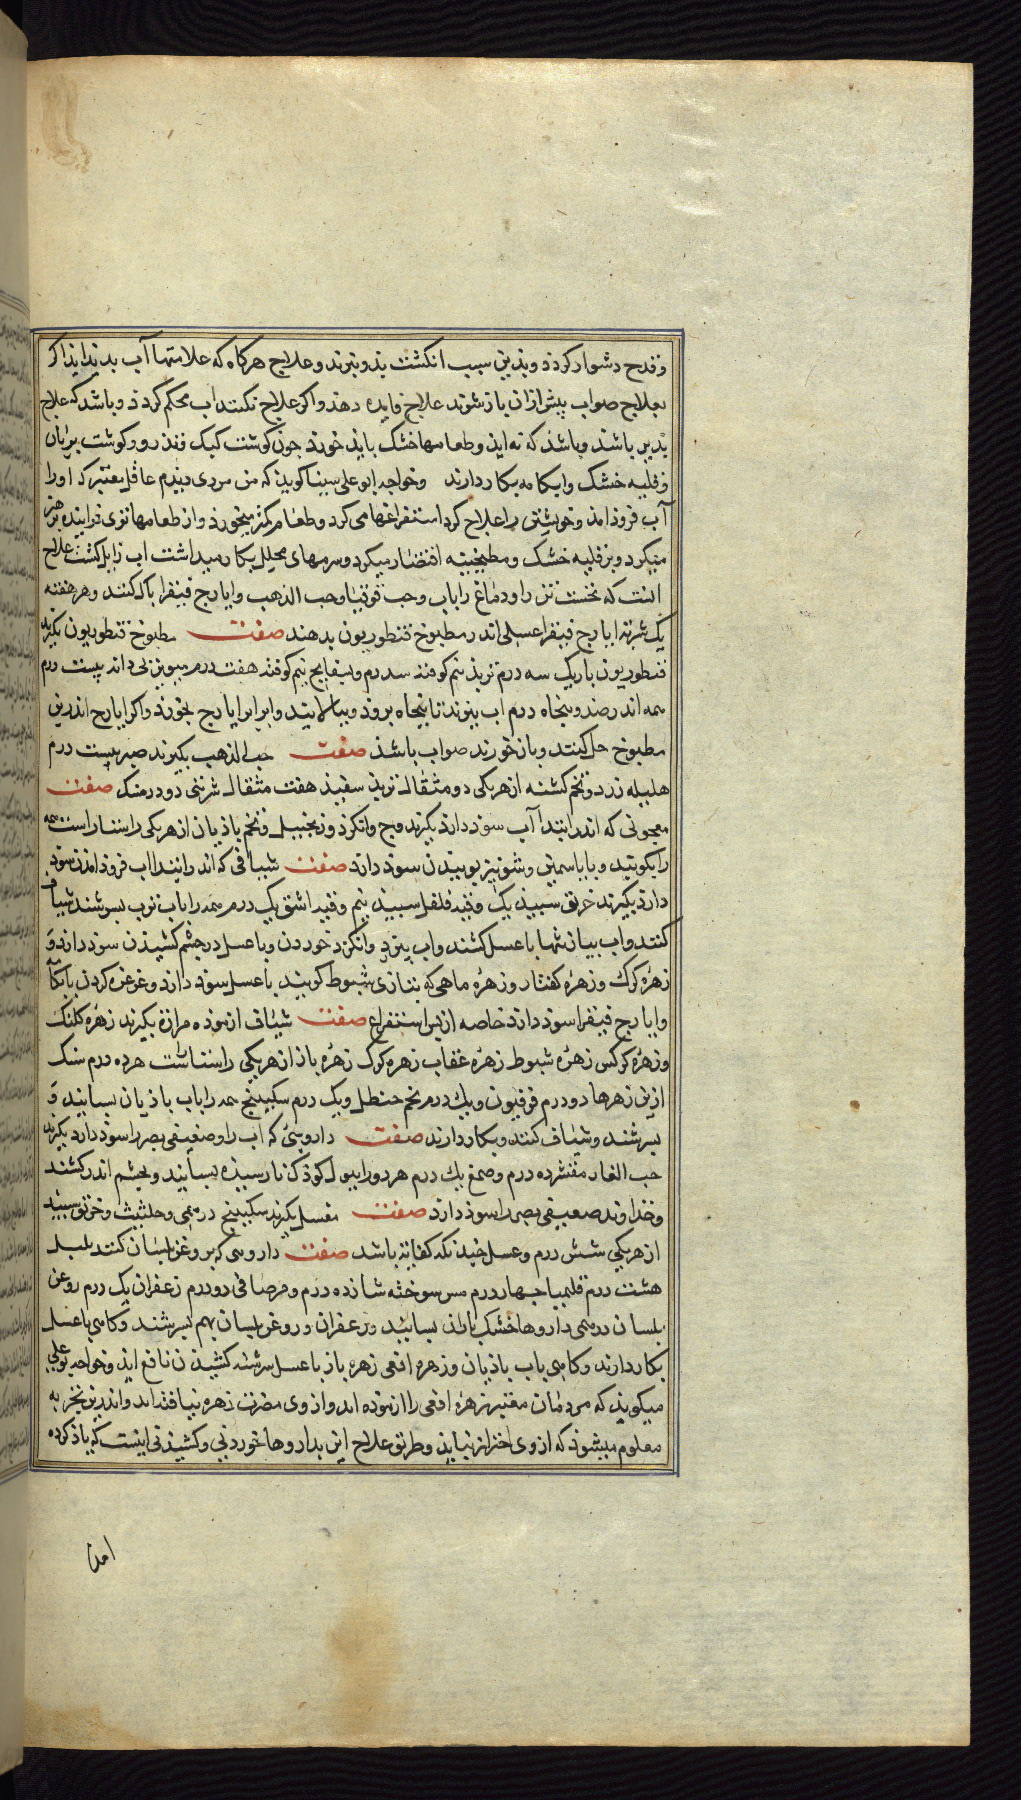 وقدح دشوار کردد وبدین سبب انکشت بذو برند وعلاج هرکاه که علامتها آب بدید اید اکر
بعلاج صواب پیش ازان باز شوند علاج فایده دهد واکر علاج نکنند اب محکم کردد وباشد که علاج
بذیر باشد وباشد که نه ایذ وطعامها خشک بایذ خورد جون کوشت کبک ور کوشت بریان
وقلیه خشک وابکامه بکار دارند وخواجه ابو علی سینا کوید که من مردی دیدم عاقل معتبر که اورا
آب فروذ امذ وخویشتن را علاج کرد استفراغها می کرد وطعام کمتر میخورد واز طعامها تری فزاینده برهیز
میکرد وبر قلیه خشک ومطجنه اقتصار میکرد وسرمهای محلل بکار میداشت اب زایل کشت علاج
انست که نخست تن را ودماغ را باب وحب قوقیا وحب الذهب وایارج فیقرا باک کنند وهر هفته
یک شربة ایارج فیقرا عسلی اندر مطبوخ قنطوریون بدهند صفت مطبوخ قنطوریون بکیرند
قنطوریون باریک سه درم تربد نیم کوفته سه درم وبسفایج نیم کوفته هفت درم مویز بی دانه بیست درم
همه اندر صد وبنجاه درم اب ببزند تا ببنجاه بروذ وببالایند وابر ایارج بخورد واکر ایارج اندرین
مطبوخ حل کنند وباز خورند صواب باشذ صفت حب الذهب بکیرند صبر بیست درم
هلیله زرد وتخم کشنه از هریکی دو مثقال تربد سفید هفت مثقال شربتی دو درمنک صفت
معجونی که اندر ابتدا آب سوذ دارد بکیرند وج وانکزد وزنجبیل وتخم باذیان از هریکی راستاراست همه
را بکوبند وبا یاسمین وشونیز بوییدن سوذ دارد صفت شیافی که اندر ابتدا اب فروذ امدن سوذ
دارذ بکیرند خربق سبید یک وقیه فلفل سبید نیم وقیه اشق یک درم همه را باب ترب بسرشند شیاف
کنند واب بیاز تنها با عسل کشند واب وانکزد خوردن وبا عسل در جشم کشیدن سوذ دارد و
زهره کرک وزهره کفتار وزهره ماهی که بتازی شبوط کویند با عسل سوذ دارد وغرغره کردن بابکامه
وایارج فیقرا سوذ دارد خاصه از پس استفراغ صفت شیاف ازموذه مرازه بکیرند زهره کلنک
وزهره کرکس زهره شبوط زهره عقاب زهره کوک زهره باز از هریکی راستاشت هر ده درم سنک
ازین زهرها دو درم فرفیون ویک درم تخم حنظل ویک درم سکبینج همه را باب باذیان بسایند و
بسرشند وشیاف کنند وبکار دارند صفت داروی که اب را وضعیفی بصر را سوذ دارد بکیرند
حب الغار مقشر ده درم وصمغ یک درم هر دو را ببول کوذک نا رسیده بسایند وبجشم اندر کشند
وخداوند ضعیفی بصر را سوذ دارد صفت بکیرند سکبینج درمی وحلتیث وخربق سبید
از هریکی شش درم وعسل جندانکه کفایة باشد صفت داروی که بروغن بلسان کنند بلبل
هشت درم قلیمیا جهار درم مس سوخته شانزده درم ومر صافی دو درم زعفران یک درم روغن
بلسان درمی داروها خشک باران بسایند وزعفران وروغن بلسان بهم بسرشند وکاهی با عسل
بکار دارند وکاهی باب باذیان وزهره افعی زهره باز با عسل سرشته کشیدن نافع ایذ وخواجه بوعلی
میکویذ که مردمان معتبر زهره افعی را ازموده اند واز وی مضرت زهره نیافته اند واندرین تجربه
معلوم میشوذ که از وی احتراز نیابذ وطریق علاج این بداروها خوردنی وکشیدنی اینست که یاذ کرده
امد